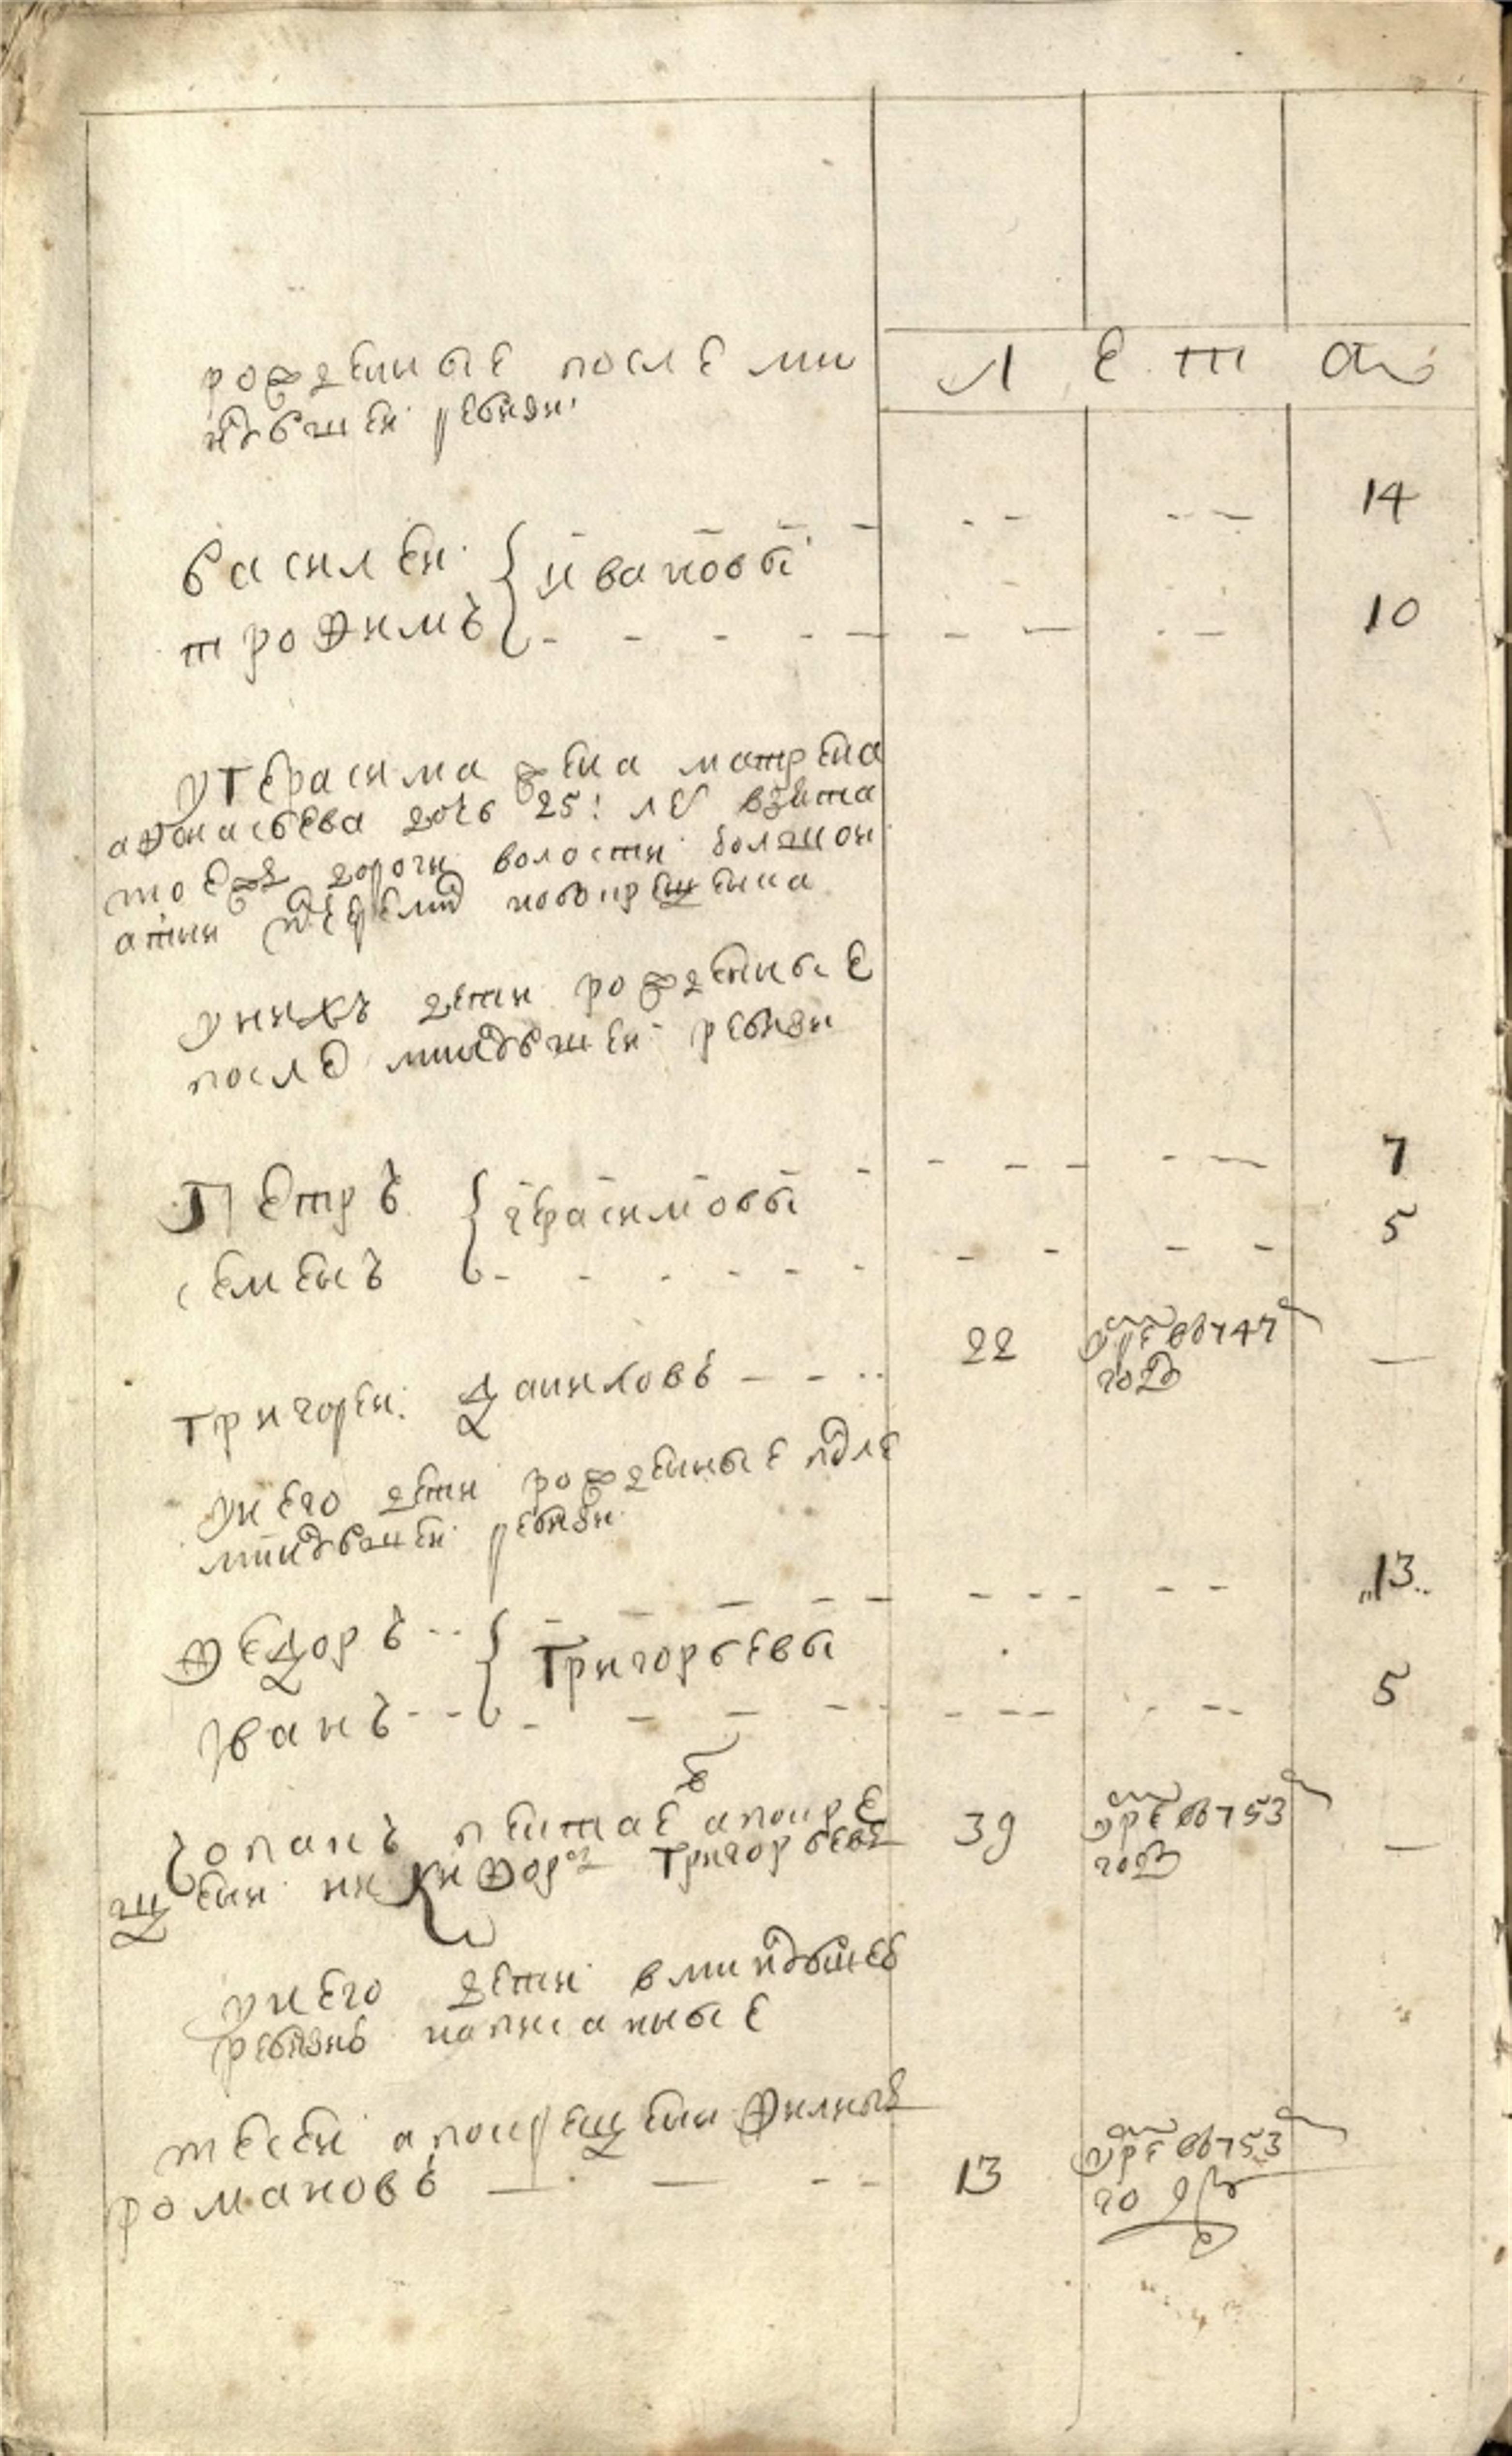 рожденные после ми
нувшей ревизи
Л е т а
василей { ивановы 14
трофимъ 10
у Герасима жена матрена
афонасьева дочь 25: ле взята
тоеж дороги волости болшои
атни новокрещена
у нихъ дети рожденые
после минувшей ревизи
Петръ { герасимовы 7
семенъ 5
Григорей Даниловъ 22 умре в 747 —
году
у него дети рожденные после
минувшей ревизи
Федоръ { Григорьевы 13
Иванъ 5
в
чопанъ пентае а по кре
щени никифоръ Григорьевъ 39 умре в 753 —
году
у него дети в минувшеб
ревизиь написаные
тесеи а по крещени филипъ
романовъ 13 умре в 753
году